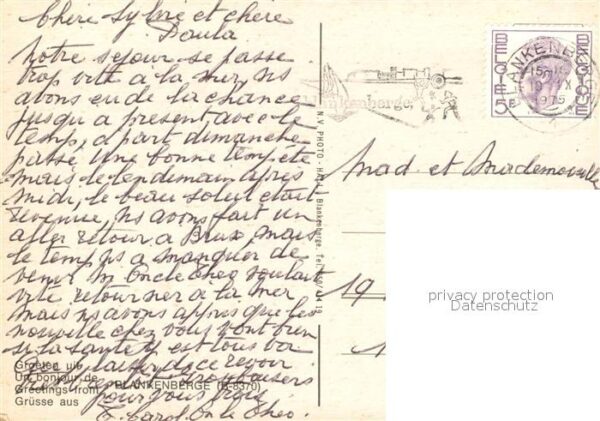 Chère Sylvie et chère
Paula
Notre séjour se passe
trop vite à la mer, ns
avons eu de la chance
jusqu'a present avec le
temps, a part dimanche
passé une bonne tempête
mais le lendemain après
midi, le beau soleil était
revenue, ns avons fait un
aller retour a Brux, mais
le temps ns a manquer de
venir, m Oncle Theo voulait
vite retourner à la mer
mais ns avons appris que les
nouvelle chez vous vont bien
si la santé y est tous va
revoir
baisers
pour vous trois
T. Oncle Theo.
Greeten uit
Un bonjour de
Greetings from BLANKENBERGE (B-8370)
Grüsse aus
N.V. PHOTO Blankenberge. Tel.
Blankenberge
BLANKENBERGE
15
19 X
1975
BELGIE 5F BELGIQUE
Mad et Mademoiselle
19
A
privacy protection
Datenschutz